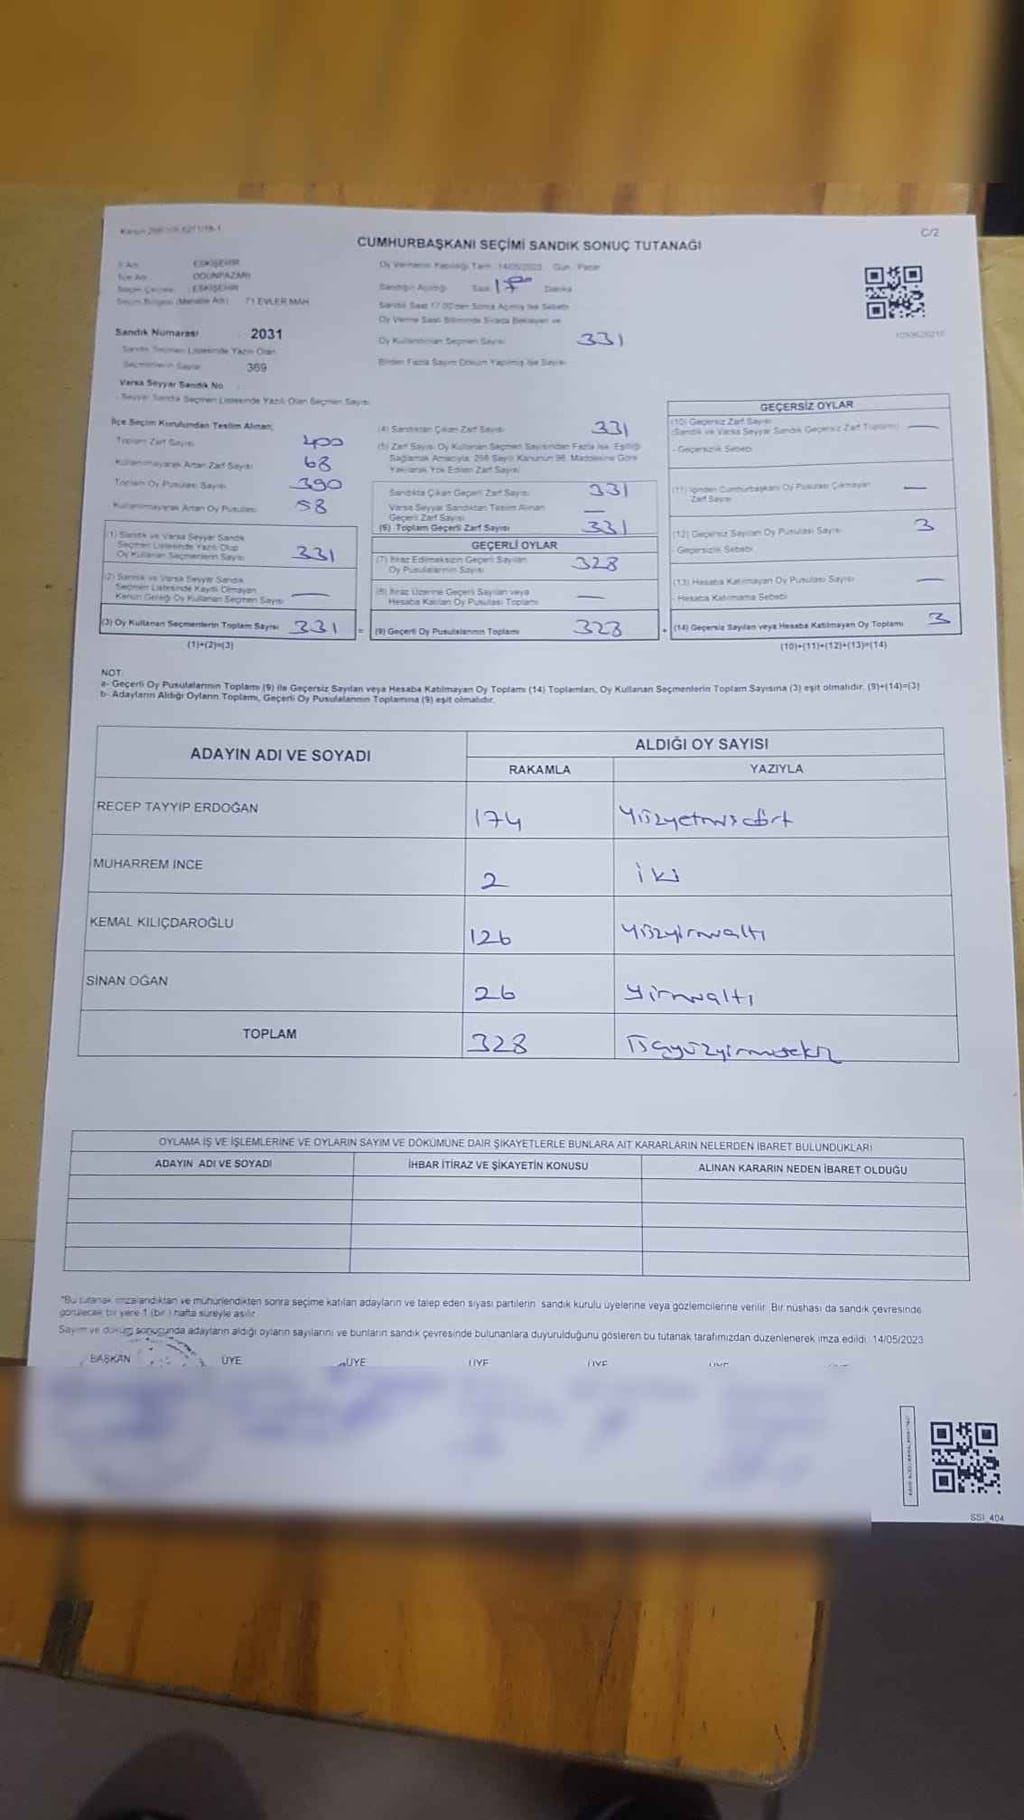 C/2
CUMHURBAŞKANI SEÇİMİ SANDIK SONUÇ TUTANAĞI
İl Adı ESKİŞEHİR
İlçe Adı ODUNPAZARI
Seçim Çevresi : ESKİŞEHİR
Seçim Bölgesi (Mahalle Adı) 71 EVLER MAH
Sandık Numarası : 2031
Sandık Seçmen Listesinde Yazılı Olan
Seçmenlerin Sayısı 369
Varsa Seyyar Sandık No
- Seyyar Sandık Seçmen Listesinde Yazılı Olan Seçmen Sayısı
Oy Vermenin Yapıldığı Tarih 14/05/2023 Gün Pazar
Sandığın Açıldığı Saat 17 Dakika
Sandık Saat 17.00'den Sonra Açılmış İse Sebebi
Oy Verme Saati Bitiminde Sırada Bekleyen ve
Oy Kullandırılan Seçmen Sayısı 331
Birden Fazla Sayım Döküm Yapılmış İse Sayısı
İlçe Seçim Kurulundan Teslim Alınan;
Toplam Zarf Sayısı 400
Kullanılmayarak Artan Zarf Sayısı 68
Toplam Oy Pusulası Sayısı 390
Kullanılmayarak Artan Oy Pusulası 58
(1) Sandık ve Varsa Seyyar Sandık
Seçmen Listesinde Yazılı Olup
Oy Kullanan Seçmenlerin Sayısı 331
(2) Sandık ve Varsa Seyyar Sandık
Seçmen Listesinde Kaydı Olmayan
Kanun Gereği Oy Kullanan Seçmen Sayısı —
(3) Oy Kullanan Seçmenlerin Toplam Sayısı 331 =
(1)+(2)=(3)
(4) Sandıktan Çıkan Zarf Sayısı 331
(5) Zarf Sayısı Oy Kullanan Seçmen Sayısından Fazla İse, Eşitliği
Sağlamak Amacıyla, 298 Sayılı Kanunun 98. Maddesine Göre
Yakılarak Yok Edilen Zarf Sayısı
Sandıkta Çıkan Geçerli Zarf Sayısı 331
Varsa Seyyar Sandıktan Teslim Alınan
Geçerli Zarf Sayısı —
(6) Toplam Geçerli Zarf Sayısı 331
GEÇERLİ OYLAR
(7) İtiraz Edilmeksizin Geçerli Sayılan
Oy Pusulalarının Sayısı 328
(8) İtiraz Üzerine Geçerli Sayılan veya
Hesaba Katılan Oy Pusulası Toplamı —
(9) Geçerli Oy Pusulalarının Toplamı 328 +
GEÇERSİZ OYLAR
(10) Geçersiz Zarf Sayısı
(Sandık ve Varsa Seyyar Sandık Geçersiz Zarf Toplamı) —
- Geçersizlik Sebebi
(11) İçinden Cumhurbaşkanı Oy Pusulası Çıkmayan
Zarf Sayısı —
(12) Geçersiz Sayılan Oy Pusulası Sayısı 3
- Geçersizlik Sebebi
(13) Hesaba Katılmayan Oy Pusulası Sayısı —
- Hesaba Katılmama Sebebi
(14) Geçersiz Sayılan veya Hesaba Katılmayan Oy Toplamı 3
(10)+(11)+(12)+(13)=(14)
NOT:
a- Geçerli Oy Pusulalarının Toplamı (9) ile Geçersiz Sayılan veya Hesaba Katılmayan Oy Toplamı (14) Toplamları, Oy Kullanan Seçmenlerin Toplam Sayısına (3) eşit olmalıdır. (9)+(14)=(3)
b- Adayların Aldığı Oyların Toplamı, Geçerli Oy Pusulalarının Toplamına (9) eşit olmalıdır.
ADAYIN ADI VE SOYADI
ALDIĞI OY SAYISI
RAKAMLA YAZIYLA
RECEP TAYYİP ERDOĞAN 174 Yüzyetmişdört
MUHARREM İNCE 2 iki
KEMAL KILIÇDAROĞLU 126 Yüzyirmialtı
SİNAN OĞAN 26 Yirmialtı
TOPLAM 328 Üçyüzyirmisekiz
OYLAMA İŞ VE İŞLEMLERİNE VE OYLARIN SAYIM VE DÖKÜMÜNE DAİR ŞİKAYETLERLE BUNLARA AİT KARARLARIN NELERDEN İBARET BULUNDUKLARI
ADAYIN ADI VE SOYADI İHBAR İTİRAZ VE ŞİKAYETİN KONUSU ALINAN KARARIN NEDEN İBARET OLDUĞU
*Bu tutanak imzalandıktan ve mühürlendikten sonra seçime katılan adayların ve talep eden siyasi partilerin sandık kurulu üyelerine veya gözlemcilerine verilir. Bir nüshası da sandık çevresinde
görülecek bir yere 1 (bir ) hafta süreyle asılır.
Sayım ve döküm sonucunda adayların aldığı oyların sayılarını ve bunların sandık çevresinde bulunanlara duyurulduğunu gösteren bu tutanak tarafımızdan düzenlenerek imza edildi. 14/05/2023
BAŞKAN ÜYE ÜYE ÜYE ÜYE
SSI_404